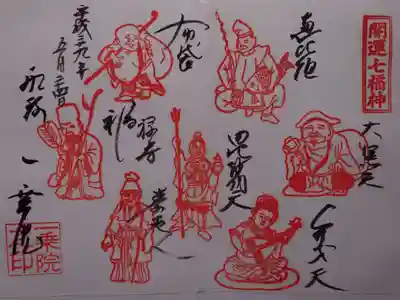 開運七福神
恵比須
大黒天
毘沙門天
弁天
布袋
福禄寿
寿老人
平成二九年
五月二四日
一乗院
一乗院印